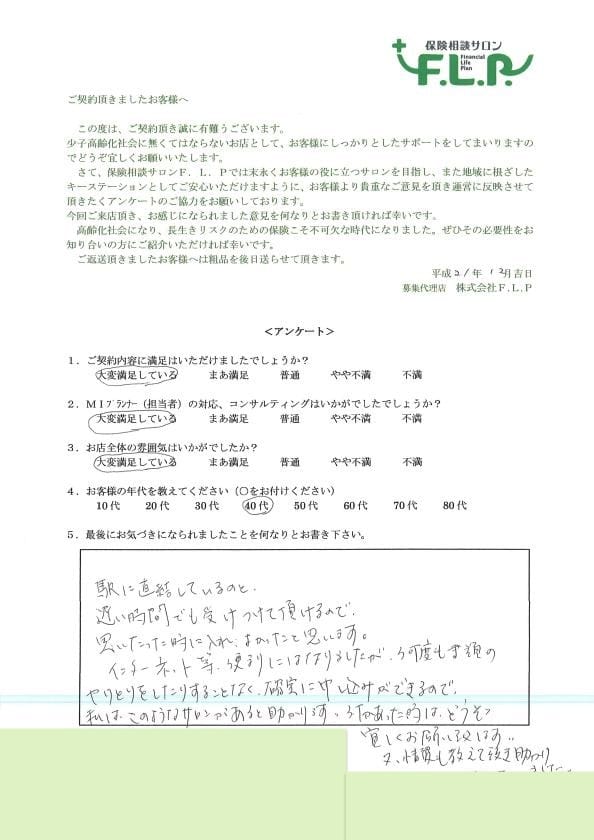 保険相談サロン
F.L.P.
Financial
Life
Plan
ご契約頂きましたお客様へ
この度は、ご契約頂き誠に有難うございます。
少子高齢化社会に無くてはならないお店として、お客様にしっかりとしたサポートをしてまいりますの
でどうぞ宜しくお願いいたします。
さて、保険相談サロンF．L．Pでは末永くお客様の役に立つサロンを目指し、また地域に根ざした
キーステーションとしてご安心いただけますように、お客様より貴重なご意見を頂き運営に反映させて
頂きたくアンケートのご協力をお願いしております。
今回ご来店頂き、お感じになられました意見を何なりとお書き頂ければ幸いです。
高齢化社会になり、長生きリスクのための保険こそ不可欠な時代になりました。ぜひその必要性をお
知り合いの方にご紹介いただければ幸いです。
ご返送頂きましたお客様へは粗品を後日送らせて頂きます。
平成21年 12月吉日
募集代理店 株式会社F.L.P
＜アンケート＞
１．ご契約内容に満足はいただけましたでしょうか？
大変満足している まあ満足 普通 やや不満 不満
２．ＭＩプランナー（担当者）の対応、コンサルティングはいかがでしたでしょうか？
大変満足している まあ満足 普通 やや不満 不満
３．お店全体の雰囲気はいかがでしたか？
大変満足している まあ満足 普通 やや不満 不満
４．お客様の年代を教えてください（○をお付けください）
10代 20代 30代 40代 50代 60代 70代 80代
５．最後にお気づきになられましたことを何なりとお書き下さい。
駅に直結しているのと、
遅い時間でも受けつけて頂けるので、
思いたった時に入れ、よかったと思います。
インターネット等、便利にはなりましたが、何度も書類の
やりとりをしたりすることなく、確実に申し込みができるので、
私は、このようなサロンがあると助かります。何かあった時は、どうぞ
宜しくお願い致します。
又、情報も教えて頂き助かり
ました。